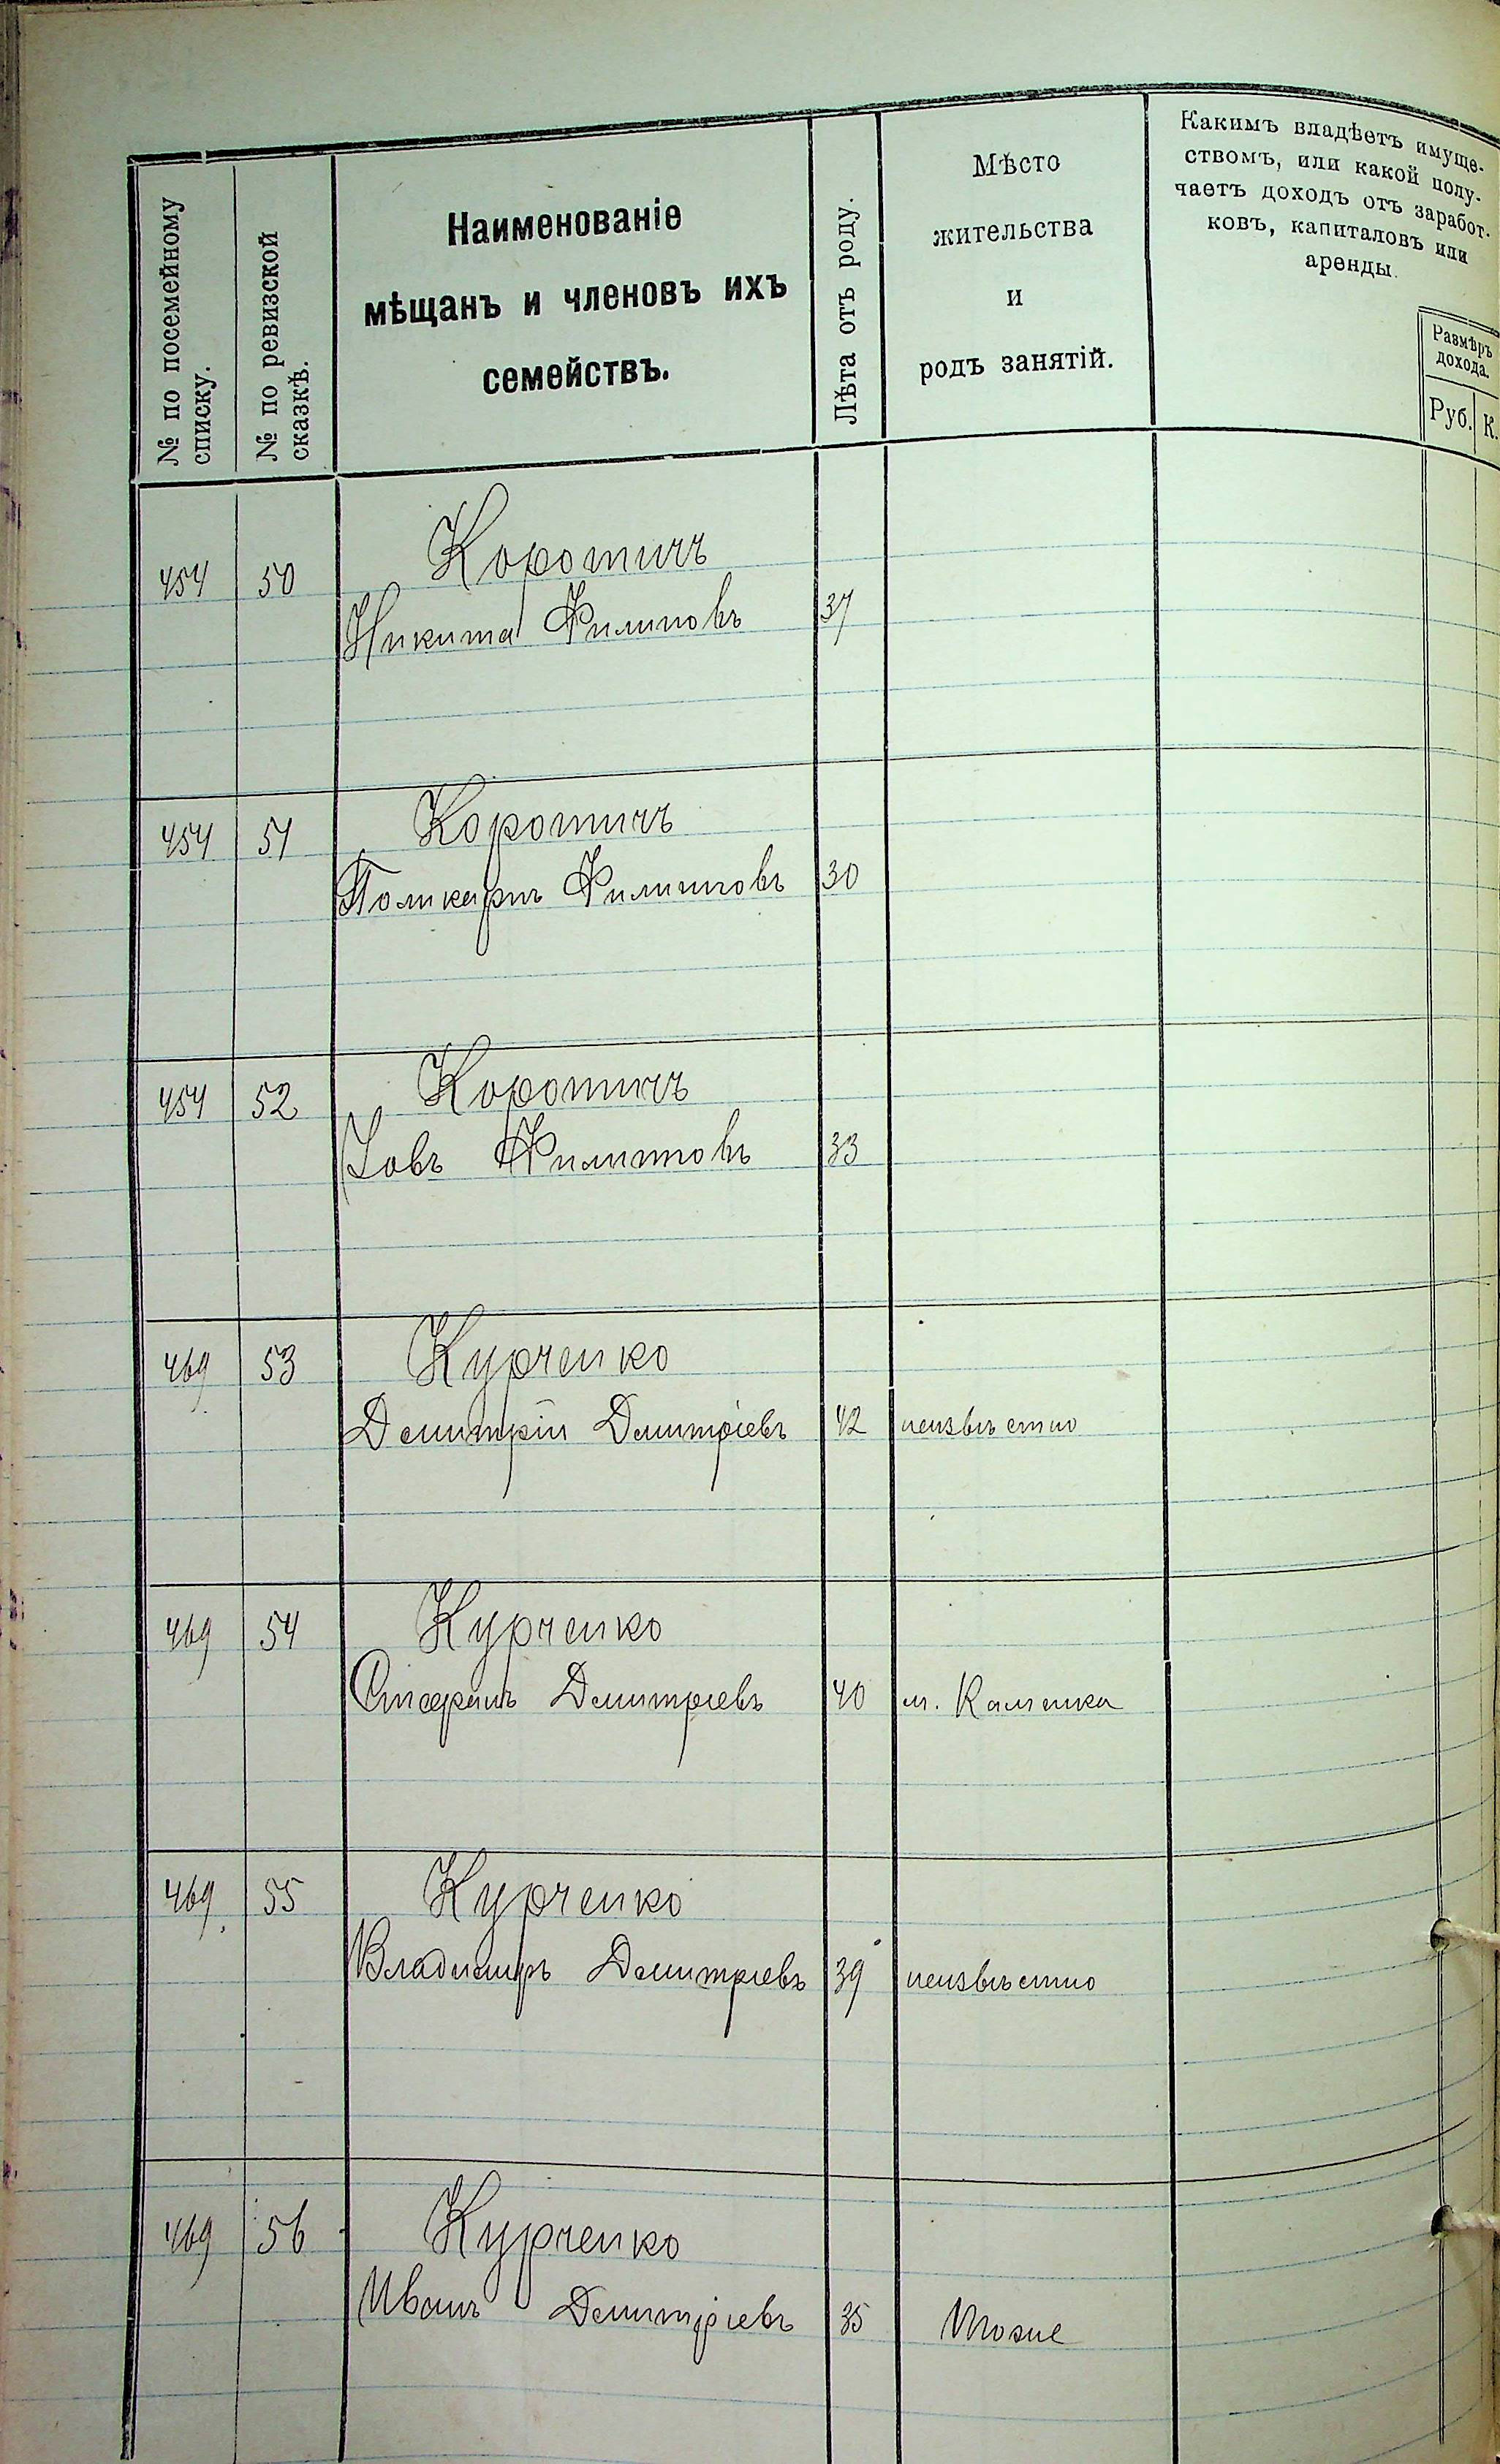 № по посемейному
списку.
№ по ревизской
сказкѣ.
Наименованіе
мѣщанъ и членовъ ихъ
семействъ.
Лѣта отъ роду.
Мѣсто
жительства
и
родъ занятій.
Какимъ владѣетъ имуще-
ствомъ, или какой полу-
чаетъ доходъ отъ заработ-
ковъ, капиталовъ или
аренды.
Размѣръ
дохода.
Руб. К.
454 50 Коротичъ
Никита Филиповъ 37
454 51 Коротичъ
Поликарпъ Филиповъ 30
454 52 Коротичъ
Іовъ Филиповъ 33
469 53 Курченко
Димитрій Димитріевъ 42 неизвѣстно
469 54 Курченко
Стефанъ Димитріевъ 40 м. Каменка
469 55 Курченко
Владимиръ Димитріевъ 39 неизвѣстно
469 56 Курченко
Иванъ Димитріевъ 35 тоже